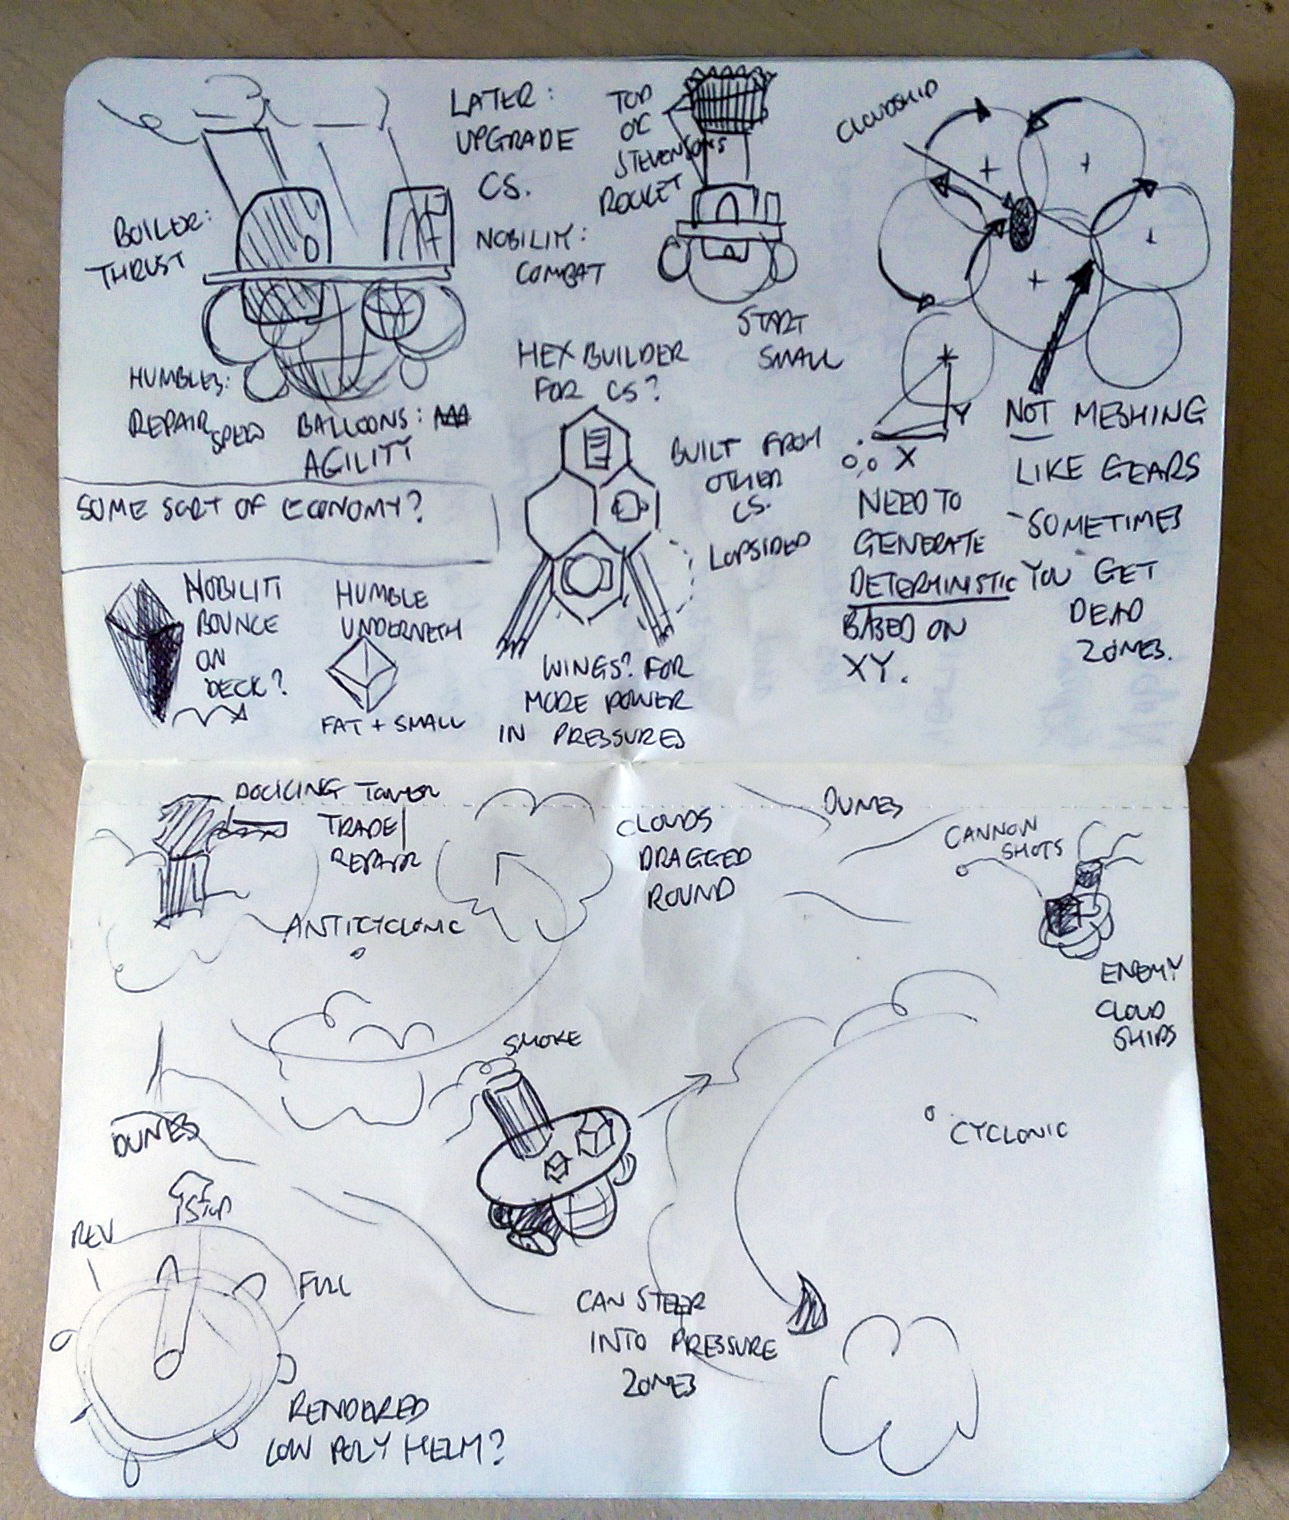 LATER:
UPGRADE
CS.
NOBILITY:
COMBAT
BOILER:
THRUST
HUMBLES:
REPAIR
SPEED
BALLOONS:
AGILITY
TOP
OF
STEVENSONS
ROCKET
START
SMALL
CLOUDSHIP
HEX BUILDER
FOR CS?
BUILT FROM
OTHER
CS.
LOPSIDED
WINGS? FOR
MORE POWER
IN PRESSURES
Y
X
NEED TO
GENERATE
DETERMINISTIC
BASED ON
XY.
NOT MESHING
LIKE GEARS
- SOMETIMES
YOU GET
DEAD
ZONES.
SOME SORT OF ECONOMY?
NOBILITY
BOUNCE
ON
DECK?
HUMBLE
UNDERNETH
FAT + SMALL
DOCKING TOWER
TRADE/
REPAIR
ANTICYCLONIC
CLOUDS
DRAGGED
ROUND
DUNES
CANNON
SHOTS
ENEMY
CLOUD
SHIPS
SMOKE
DUNES
CYCLONIC
STOP
REV
FULL
CAN STEER
INTO PRESSURE
ZONES
RENDERED
LOW POLY HELM?